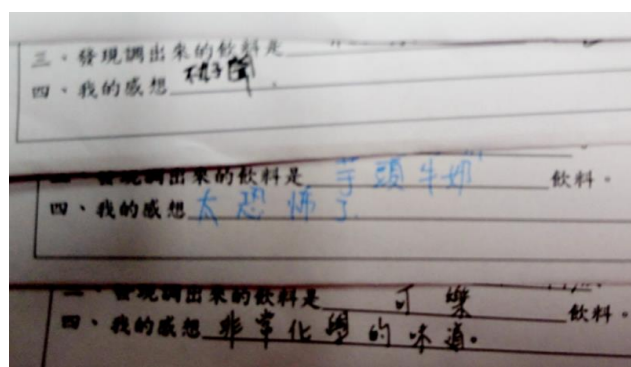 三、發現調出來的飲料是
四、我的感想 不好喝.
發現調出來的飲料是 芋頭牛奶 飲料。
四、我的感想 太恐怖了.
三、發現調出來的飲料是 可樂 飲料。
四、我的感想 非常化學的味道。